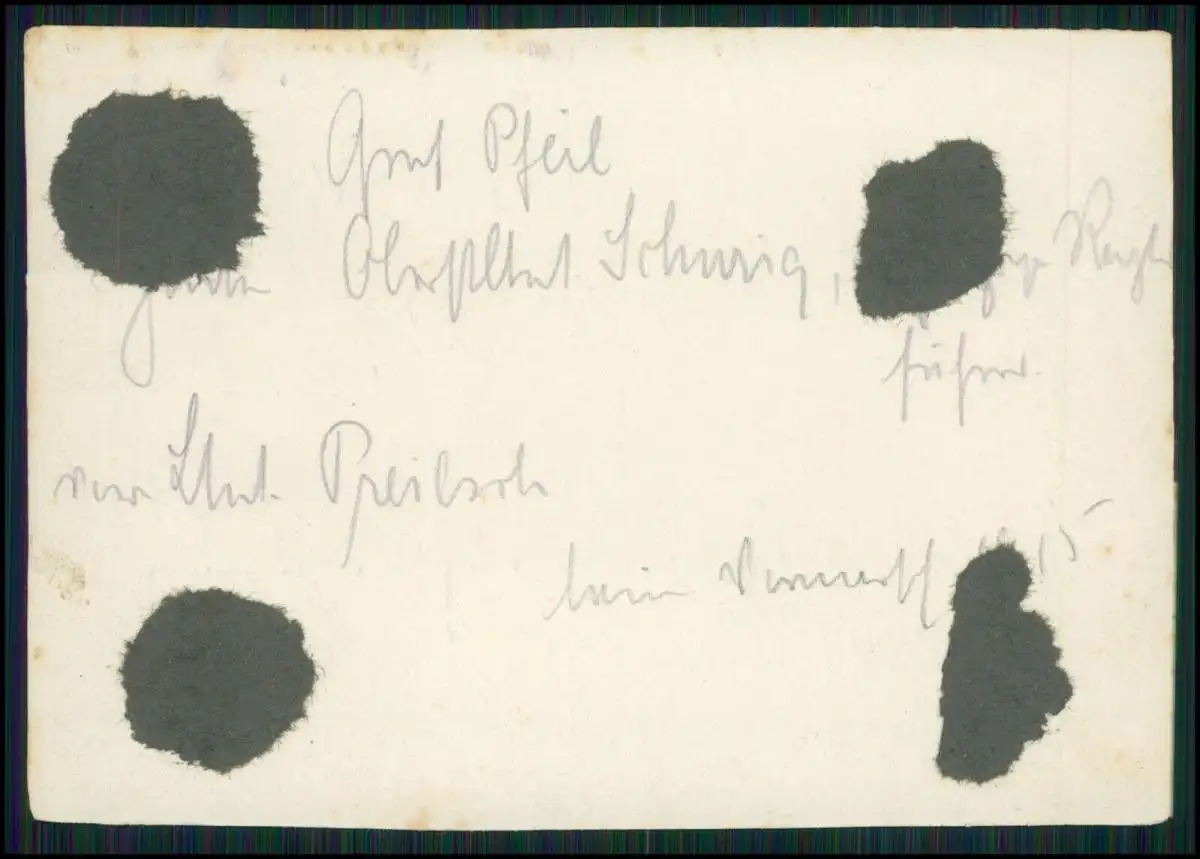 Graf Pfeil
Oberstltnt Schurig, Regts
führer.
vor Ltnt. Preilsch
beim Vormarsch 15